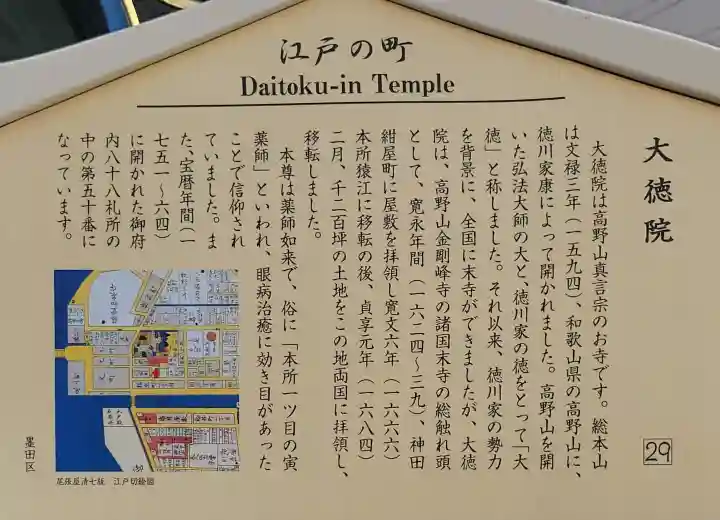 江戸の町
Daitoku-in Temple
大徳院
29
大徳院は高野山真言宗のお寺です。総本山
は文禄三年（一五九四）、和歌山県の高野山に、
徳川家康によって開かれました。高野山を開
いた弘法大師の大と、徳川家の徳をとって「大
徳」と称しました。それ以来、徳川家の勢力
を背景に、全国に末寺ができましたが、大徳
院は、高野山金剛峰寺の諸国末寺の総触れ頭
として、寛永年間（一六二四〜三九）、神田
紺屋町に屋敷を拝領し寛文六年（一六六六）
本所猿江に移転の後、貞享元年（一六八四）
二月、千二百坪の土地をこの地両国に拝領し、
移転しました。
本尊は薬師如来で、俗に「本所一ツ目の寅
薬師」といわれ、眼病治癒に効き目があった
ことで信仰され
ていました。ま
た、宝暦年間（一
七五一〜六四）
に開かれた御府
内八十八札所の
中の第五十番に
なっています。
尾張屋清七版 江戸切絵図
墨田区